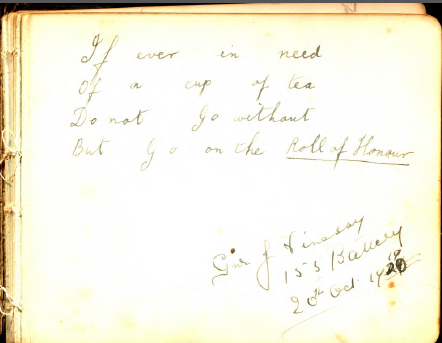 If ever in need
Of a cup of tea
Do not Go without
But Go on the Roll of Honour
Gnr J
155 Battery
20th Oct